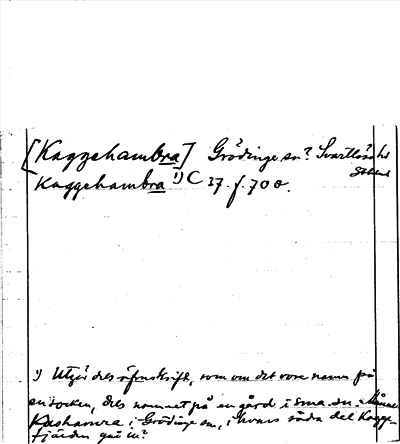 [Kaggehambra] Grödinge sn? Svartlösa hd
Kaggehambra ¹) C 37. f. 70 o.
1) Utgör dels öfverskrift, som om det vore namn på
en socken, dels namnet på en gård i sma. sn. Månne
i Grödinge sn, i hvars södra del Kagg-
fjärden går in?